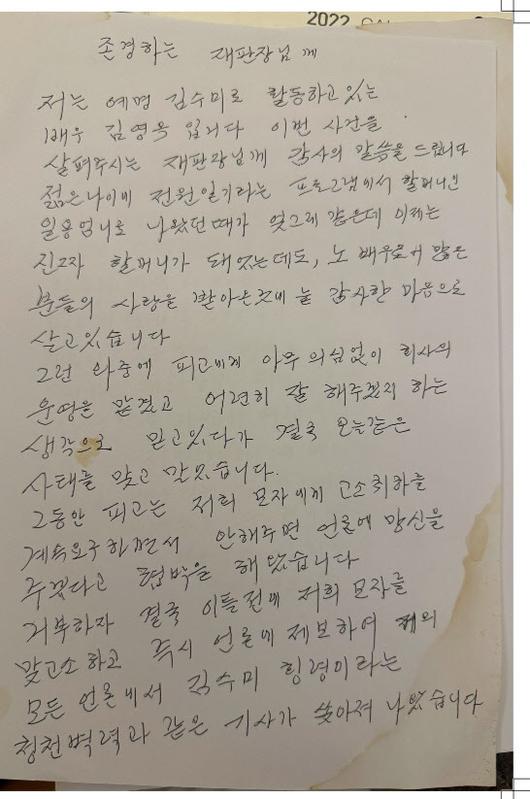 2022
존경하는 재판장님께
저는 예명 김수미로 활동하고 있는
배우 김영옥 입니다 이번 사건을
살펴주시는 재판장님께 감사의 말씀을 드립니다
젊은나이에 전원일기라는 프로그램에서 할머니인
일용엄니로 나왔던때가 엊그제 같은데 이제는
진짜 할머니가 돼있는데도, 노 배우로서 많은
분들의 사랑을 받아온것에 늘 감사한 마음으로
살고있습니다
그런 와중에 피고에게 아무 의심없이 회사의
운영을 맡겼고 어련히 잘 해주겠지 하는
생각으로 믿고있다가 결국 오늘같은
사태를 맞고 말았습니다.
그동안 피고는 저희 모자에게 고소취하를
계속요구하면서 안해주면 언론에 망신을
주겠다고 협박을 해 왔습니다
거부하자 결국 이틀전에 저희 모자를
맞고소하고 즉시 언론에 제보하여
모든 언론에서 김수미 횡령이라는
청천벽력과 같은 기사가 쏟아져 나왔습니다